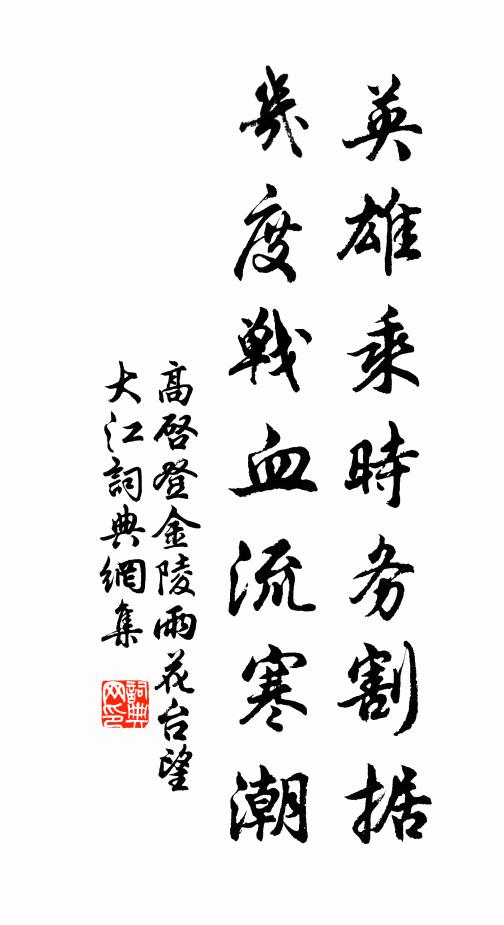 英雄乘時务割据
幾度戦血流寒潮
高啓登金陵雨花台望
大江詞典網集
詞典网印